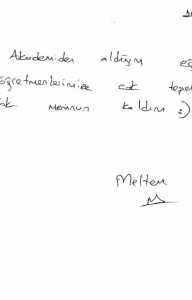 Akademiden aldığım eğ
öğretmenlerimize çok teşek
ok memnun kaldım :)
Meltem